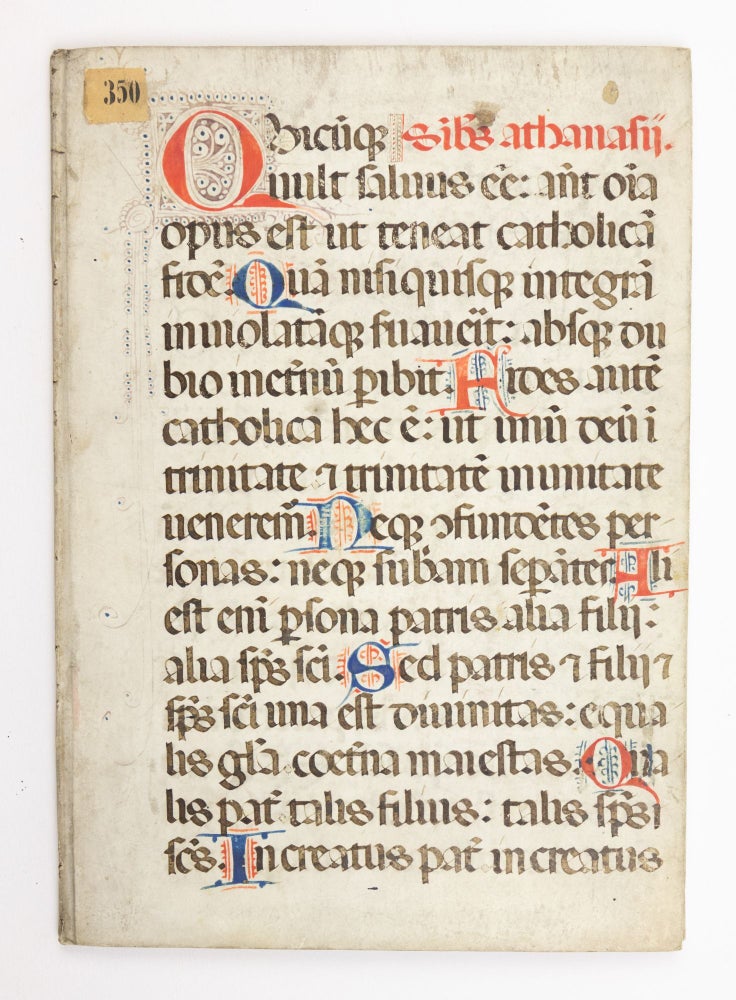 350
Quicūq Sīb̄s athanasij.
uult saluus eē: ān̄t oīa
opus est ut teneat catholicā
fidē. Quā nisi quisq integrā
inuiolatāq s̄uauēit: absq du
bio met̄nū p̱ibit. Fides autē
catholica hec ē: ut unū deū ī
trinitate ⁊ trinitatē in unitate
uenerem̄. Neq ꝯfundētes per
sonas: neq sub̄am sep̱ātes. Ali
est enī p̱sona patris alia filij:
alia sp̄s sc̄i. Sed patris ⁊ filij ⁊
sp̄s sc̄i una est diuinitas: equa
lis gl̄a coet̄na maiestas. Qua
lis pat̄ talis filius: talis sp̄s
sc̄s. In creatus pat̄ in creatus